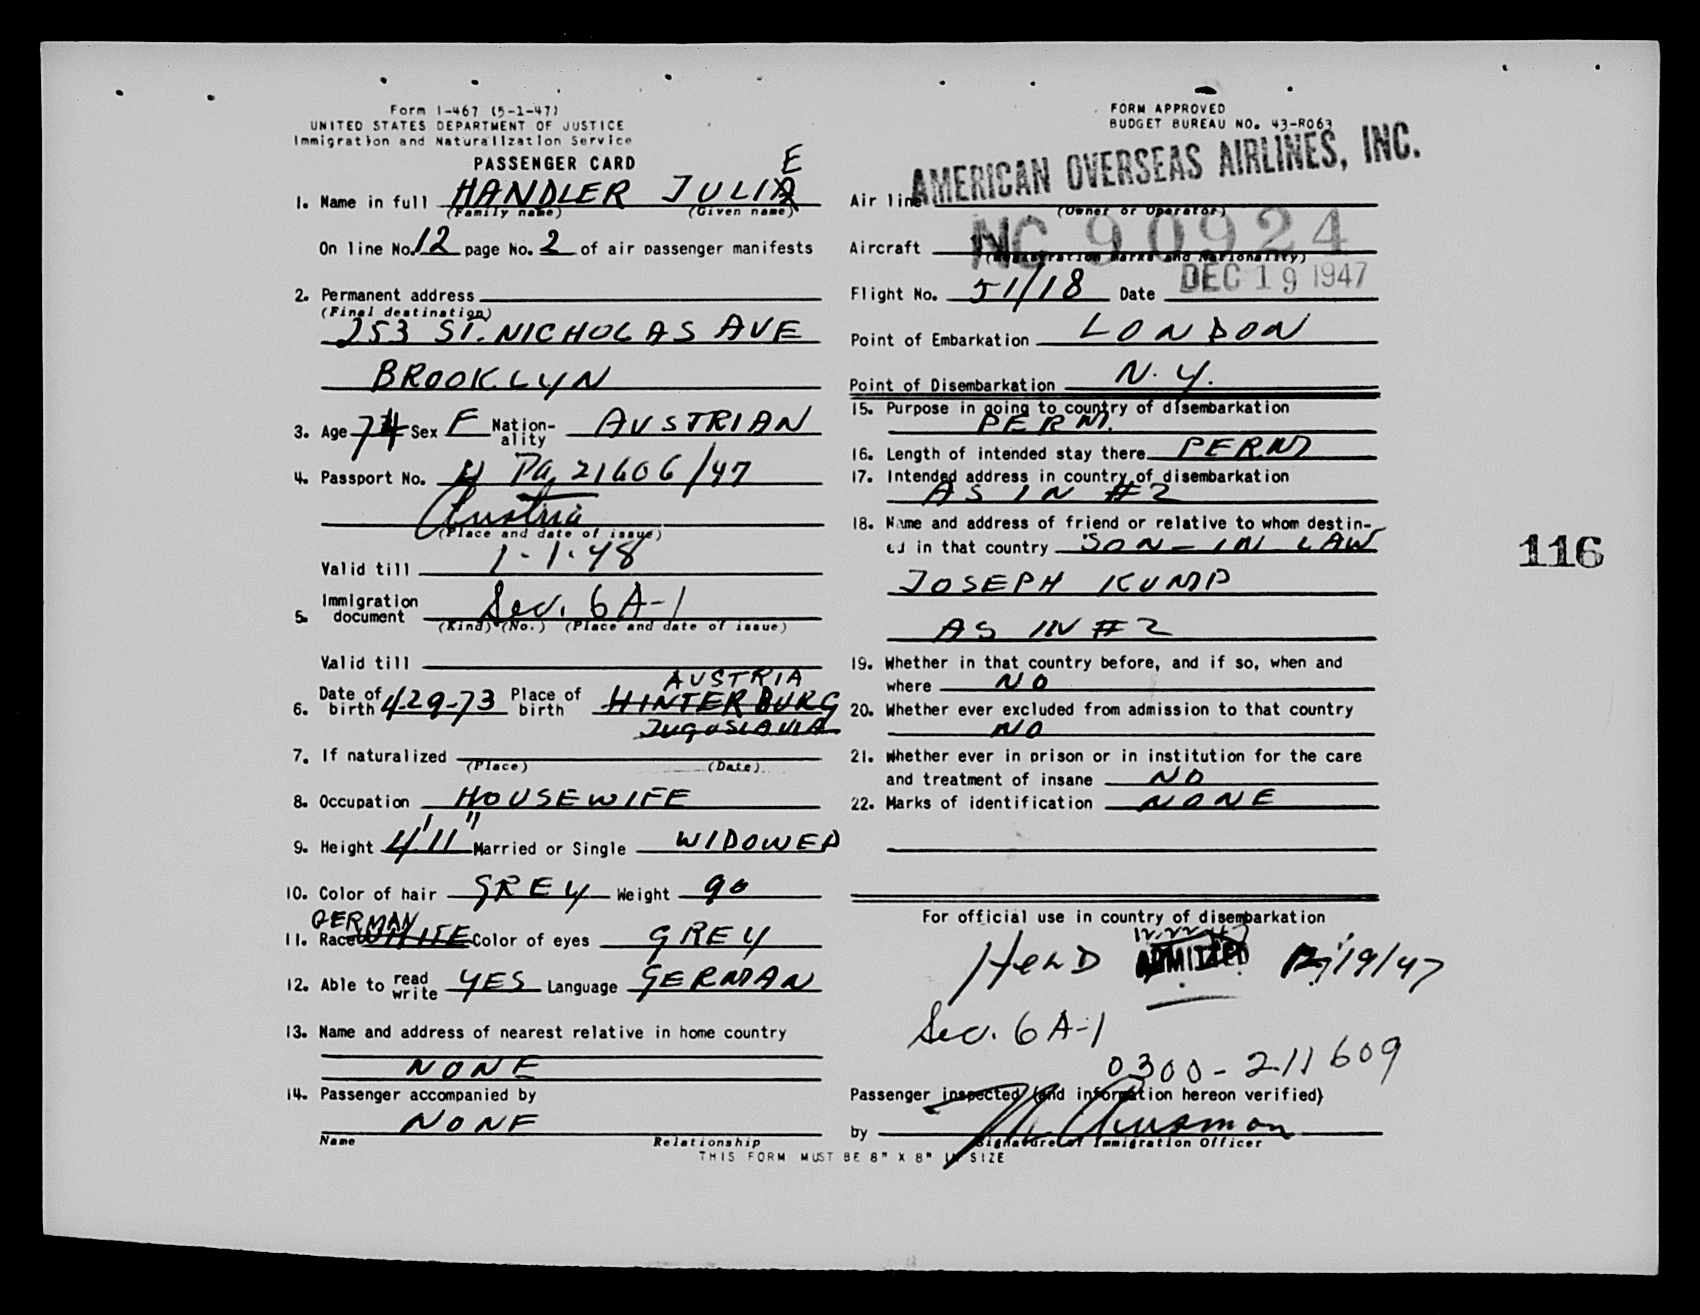 Form I-467 (5-1-47)
UNITED STATES DEPARTMENT OF JUSTICE
Immigration and Naturalization Service
PASSENGER CARD
1. Name in full HANDLER JULIE
(Family name) (Given name)
On line No. 12 page No. 2 of air passenger manifests
2. Permanent address
(Final destination)
253 ST. NICHOLAS AVE
BROOKLYN
3. Age 74 Sex F Nation-ality AUSTRIAN
4. Passport No. Pa, 21606/47
Austria
(Place and date of issue)
Valid till 1-1-48
5. Immigration document Sec. 6A-1
(Kind) (No.) (Place and date of issue)
Valid till
AUSTRIA
6. Date of birth 4-29-73 Place of birth HINTERBURG
JUGOSLAVIA
7. If naturalized
(Place) (Date)
8. Occupation HOUSEWIFE
9. Height 4'11" Married or Single WIDOWED
10. Color of hair GREY Weight 90
GERMAN
11. Race WHITE Color of eyes GREY
12. Able to read write YES Language GERMAN
13. Name and address of nearest relative in home country
NONE
14. Passenger accompanied by
NONE
Name Relationship
THIS FORM MUST BE 8" X 8" IN SIZE
FORM APPROVED
BUDGET BUREAU NO. 43-R063
AMERICAN OVERSEAS AIRLINES, INC.
Air line
(Owner or Operator)
Aircraft NC 90924
(Registration Marks and Nationality)
Flight No. 51/18 Date DEC 19 1947
Point of Embarkation LONDON
Point of Disembarkation N.Y.
15. Purpose in going to country of disembarkation
PERM.
16. Length of intended stay there PERM
17. Intended address in country of disembarkation
AS IN #2
18. Name and address of friend or relative to whom destin-
ed in that country SON-IN LAW
JOSEPH KUMP
AS IN #2
19. Whether in that country before, and if so, when and
where NO
20. Whether ever excluded from admission to that country
NO
21. Whether ever in prison or in institution for the care
and treatment of insane NO
22. Marks of identification NONE
For official use in country of disembarkation
12.22.47
HELD ADMITTED 12/19/47
Sec. 6A-1
0300-211609
Passenger inspected (and information hereon verified)
by
Signature of Immigration Officer
116